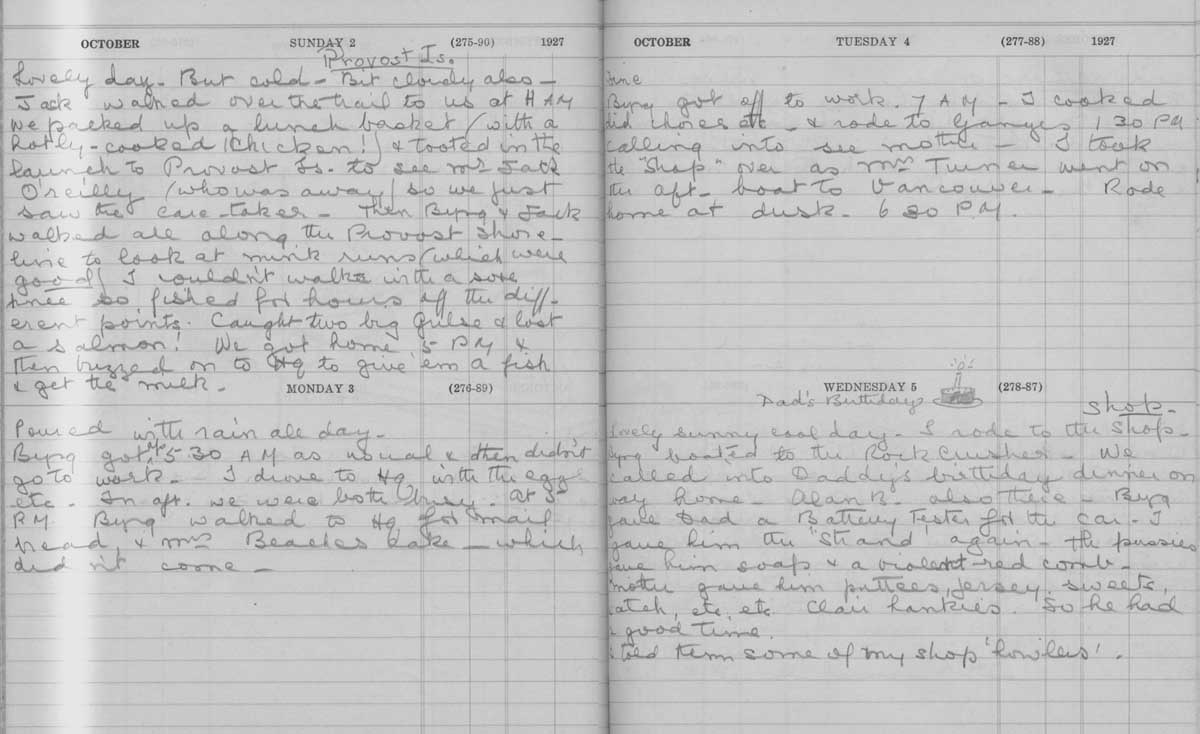 OCTOBER SUNDAY 2 (275-90) 1927
Provost Is.
Lovely day - But cold - But cloudy also -
Jack walked over the trail to us at 11 AM
We packed up a lunch basket (with a
hotly-cooked chicken!) & tooted in the
launch to Provost Is. to see Mr Jack
O'reilly (who was away) so we just
saw the care-taker - Then Byrq & Jack
walked all along the Provost shore-
line to look at mink runs (which were
good) I couldn't walk with a sore
knee so fished for hours off the diff-
erent points. Caught two big Grilse & lost
a salmon! We got home 5 PM &
then buzzed on to Hq to give 'em a fish
& get the milk -
MONDAY 3 (276-89)
Poured with rain all day -
Byrq got up 5-30 AM as usual & then didn't
go to work - I drove to Hq with the eggs
etc - In aft. we were both busy. At 5
PM Byrq walked to Hq for mail
bread, & Mrs cake - which
did n't come -
OCTOBER TUESDAY 4 (277-88) 1927
Fine
Byrq got off to work. 7 AM - I cooked
did chores etc - & rode to Ganges 1 30 PM
calling into see mother - I took
the "Shop" over as Mrs Turner went on
the aft - boat to Vancouver - Rode
home at dusk - 6 30 P.M.
WEDNESDAY 5 (278-87)
Dad's Birthday
Shop -
Lovely sunny cool day - I rode to the Shop -
Byrq boated to the Rock Crusher - We
called into Daddy's birthday dinner on
way home - Alan B. also there - Byrq
gave Dad a Battery Tester for the car - I
gave him the "Strand" again - the pussies
gave him soap & a violent-red comb -
mother gave him puttees, jersey, sweets,
etc, etc Clair hankies. So he had
a good time.
I told them some of my shop 'howlers'.